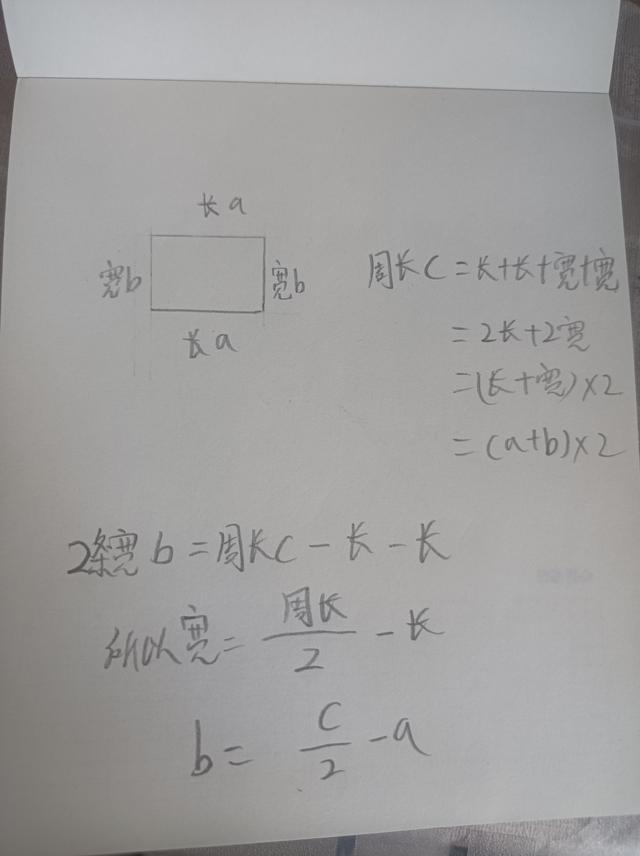 长 a
宽b
宽b
长 a
周长 C = 长+长+宽+宽
= 2长+2宽
=(长+宽)×2
= (a+b)×2
2条宽 b = 周长C - 长 - 长
所以 宽 = 周长/2 - 长
b = C/2 - a